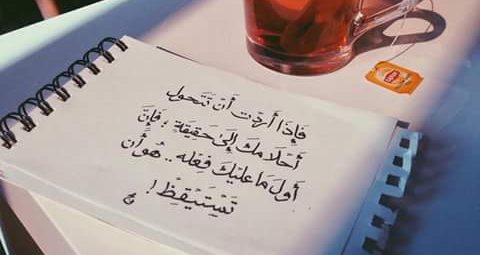 فَإِذَا أَردْت أَنْ تَتَحول
أَحْلَامكَ إِلىٰ حَقِيقَةٍ ؛ فَإِنَّ
أول مَا عَليْكَ فِعْله .. هُو أَن
تَسْتَيْقِظْ !